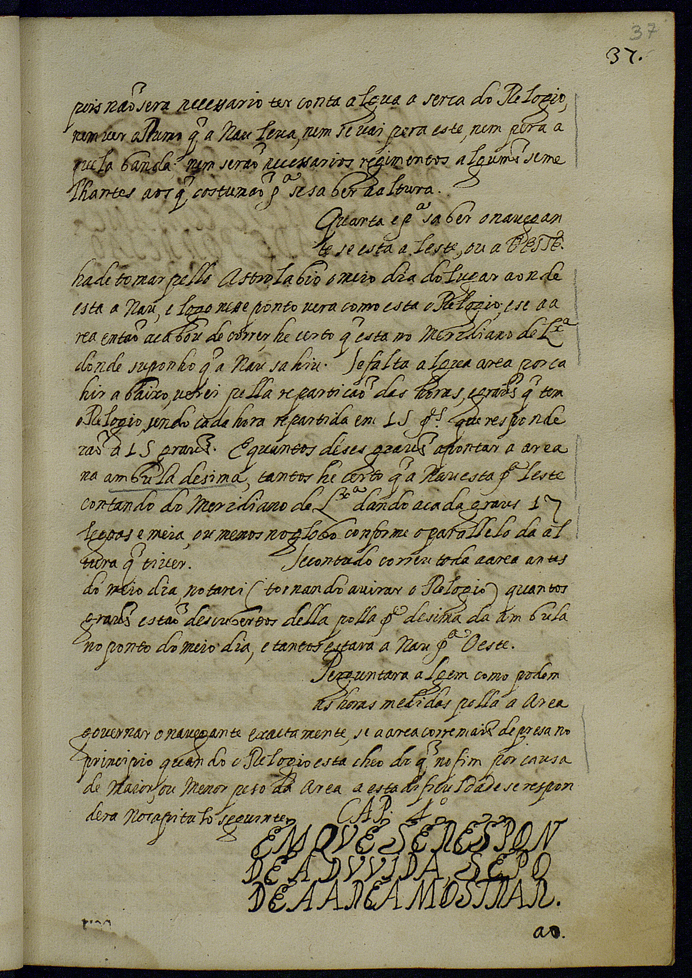 37
37.
pois não sera necessario ter conta algũa a serca do Relogio,
nem ver o Rumo q̃ a Nau leva, nem se vai pera este, nem pera a
quela banda: nem serão necessarios regimentos algums seme
lhantes aos q̃ costumão pª se saber a altura.
Quarta e pª saber o navegan
te se esta a leste, ou a OESTE.
hade tomar pello Astrolabio o meio dia do lugar aonde
esta a Nau, e logo nese ponto vera como esta o Relogio, e se a a
rea então acabou de correr he certo q̃ esta no Meridiano de Lxª
donde suponho q̃ a Nau sahiu. Se falta algũa area por ca
hir abaixo, verei pella repartição das horas, e graus q̃ tem
o Relogio, sendo cada hora repartida em 15 p.tes que responde
rão a 15 graus. E quantos deses graus apontar a area
na ambula desima, tantos he certo q̃ a Nau esta pª leste
contando do Meridiano de Lxª dando a cada graus 17
legoas e meia, ou menos no globo conforme o parallelo da al
tura q̃ tiver. Se contudo correu toda a area antes
do meio dia, notarei (tornando a virar o Relogio) quantos
graus estão descubertos della polla p.te desima da ambula
no ponto do meio dia, e tantos estara a Nau pª Oeste.
Perguntara alguem como podem
as horas medidas polla a Area
governar o navegante exactamente, se a area corre mais depresa no
principio quando o Relogio esta cheo do q̃ no fim por causa
de Maior, ou Menor peso da Area a esta dificuldade se respon
dera no capitulo seguinte.
CAP. 4º
EM QVE SE RESPON
DE A DVVIDA SE PO
DE A AREA MOSTRAR.
ao.